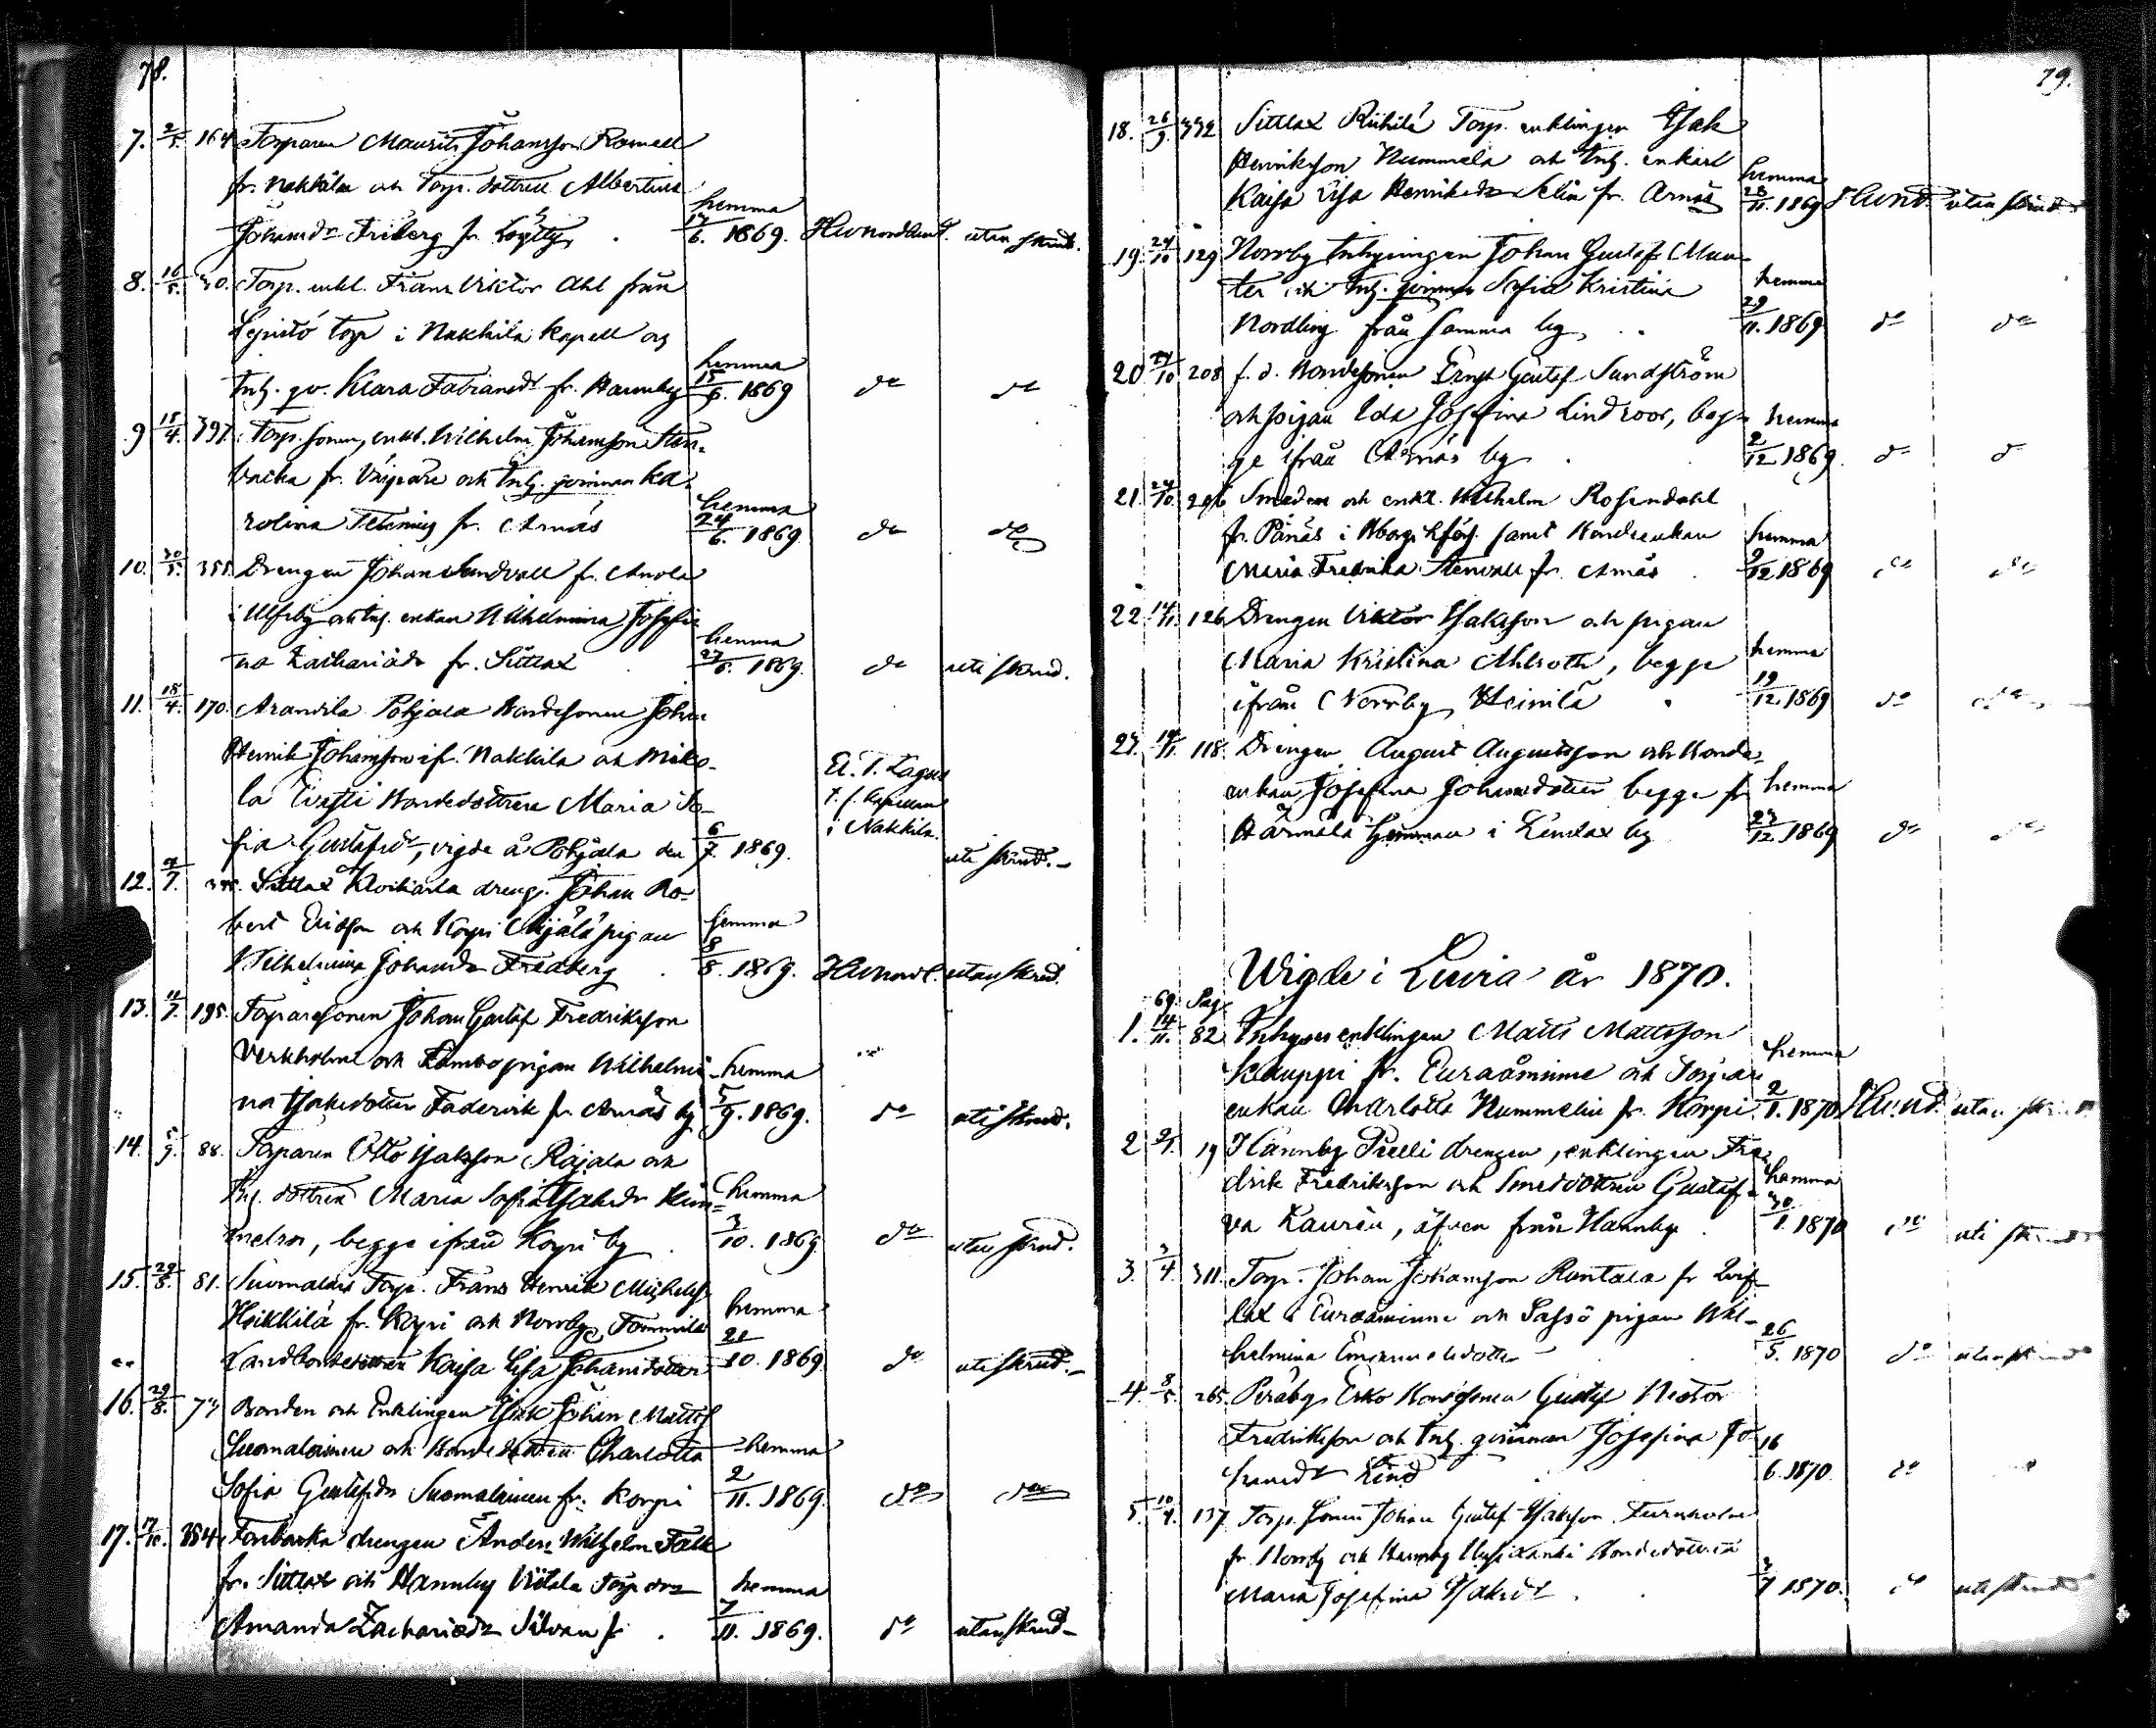 78.
7. 2/5. 164 Torparen Maurits Johansson Romell
fr. Nakkila och Torp. dottren Albertina
Johansdr Friberg fr. Löytty. hemma 17/6. 1869. utan skrud.
8. 16/5. 30. Torp. enkl. Frans Viktor Ahl från
Lepistö torp i Nakkila Kapell och
Inh. qv. Klara Fabiansdr fr. Hannby hemma 15/6. 1869 do do
9 18/4. 397. Torp. sonen, enkl. Wilhelm Johansson Sten-
backa fr. och Inh. qvinnan Ka-
rolina fr. Arnäs hemma 24/6. 1869 do do
10. 30/5. 355. Drengen Johan Sundvall fr. Anola
i Ulfsby och Inh. enkan Wilhelmina Josefi-
na Zachariædr fr. Sittlax hemma 27/6. 1869. do uti skrud.
11. 18/4. 170. Arantila Pohjala Bondesonen Johan
Henrik Johansson ifr. Nakkila och Miko-
la Bondedottren Maria So-
fia Gustafsdr, vigde å Pohjala den 6/7. 1869. uti skrud.
i Nakkila.
12. 4/7. Sittlax dreng. Johan Ro-
bert Ericsson och Korpi pigan
Wilhelmina Johansdr Fredberg hemma 8/8. 1869. utan skrud.
13. 11/7. 195. Torparesonen Johan Gustaf Fredriksson
Verkholm och pigan Wilhelmi-
na Isaksdotter Fadervik fr. Arnäs by hemma 5/9. 1869. do uti skrud.
14. 5/9. 88. Torparen Otto Isaksson Rajala och
Inh. dottren Maria Sofia Isaksdr
, begge ifrån Korpi by hemma 3/10. 1869 do utan skrud.
15. 29/8. 81. Suomalais Torp. Frans Henrik Michelss.
Heikkilä fr. Korpi och Norrby Tommila
Landbondedottren Kaisa Lisa Johansdotter hemma 21/10. 1869 do uti skrud.
16. 29/8. 73 Bonden och Enklingen Isak Johan Mattss.
Suomalainen och Bondedottren Charlotta
Sofia Gustafsdr Suomalainen fr. Korpi hemma 2/11. 1869. do do
17. 17/10. 354 drengen Anders Wilhelm Falk
fr. Sittlax och Hannby Torp. dr
Amanda Zachariædr hemma 7/11. 1869. do utan skrud
79.
18. 26/9. 332 Sittlax Riihilä Torp. enklingen Isak
Henriksson Nummela och Inh. enkan
Kaisa Lisa Henriksdr Selin fr. Arnäs hemma 28/11. 1869 utan skrud
19. 24/10 129 Norrby Inhysingen Johan Gustaf Mun-
ter och Inh. qvinnan Sofia Kristina
Nordling från samma by hemma 29/11. 1869 do do
20 24/10 208 f. d. Bondesonen Ernst Gustaf Sundström
och pigan Eda Josefina Lindroos, beg-
ge ifrån Arnäs by hemma 2/12 1869. do do
21. 24/10. 206 Smeden och enkl. Wilhelm Rosendahl
fr. Pånäs i Kförs. samt Bondeenkan
Maria Fredrika Stenvall fr. Arnäs hemma 9/12 1869 do do
22. 14/11. 126 Drengen Viktor Isaksson och pigan
Maria Kristina Ahlroth, begge
ifrån Norrby Heinilä hemma 19/12. 1869 do do
23. 14/11. 118. Drengen August Augustsson och Bonde-
enkan Josefina Johansdotter begge fr
Härmälä hemman i Lemlax by hemma 27/12. 1869 do do
Wigde i Luvia år 1870.
69. Pag.
1. 14/11. 82 Inhyses enklingen Matts Mattsson
Kauppi fr. Euraåminne och Torpare
enkan Charlotta Nummelin fr. Korpi hemma 2/1. 1870 utan skrud
2 2/1. 19 Hannby Prelli drengen, enklingen Fre-
drik Fredriksson och Smeddottren Gustaf-
va Laurén, äfven från Hannby hemma 30/1. 1870 do uti skrud
3. 3/4. 311. Torp. Johan Johansson Rantala fr
lax i Euraåminne och Sassö pigan Wil-
helmina Emanuelsdotter 26/5. 1870 do utan skrud
4 8/5. 265. Peräby Erko Bondsonen Gustaf Nestor
Fredriksson och Inh. qvinnan Josefina Jo-
hansdr Lind 16/6. 1870. do
5. 10/4. 137 Torp. sonen Johan Gustaf Isaksson Furuholm
fr. Norrby och Hannby Bondedottren
Maria Josefina Isaksdr 3/7 1870. do uti skrud